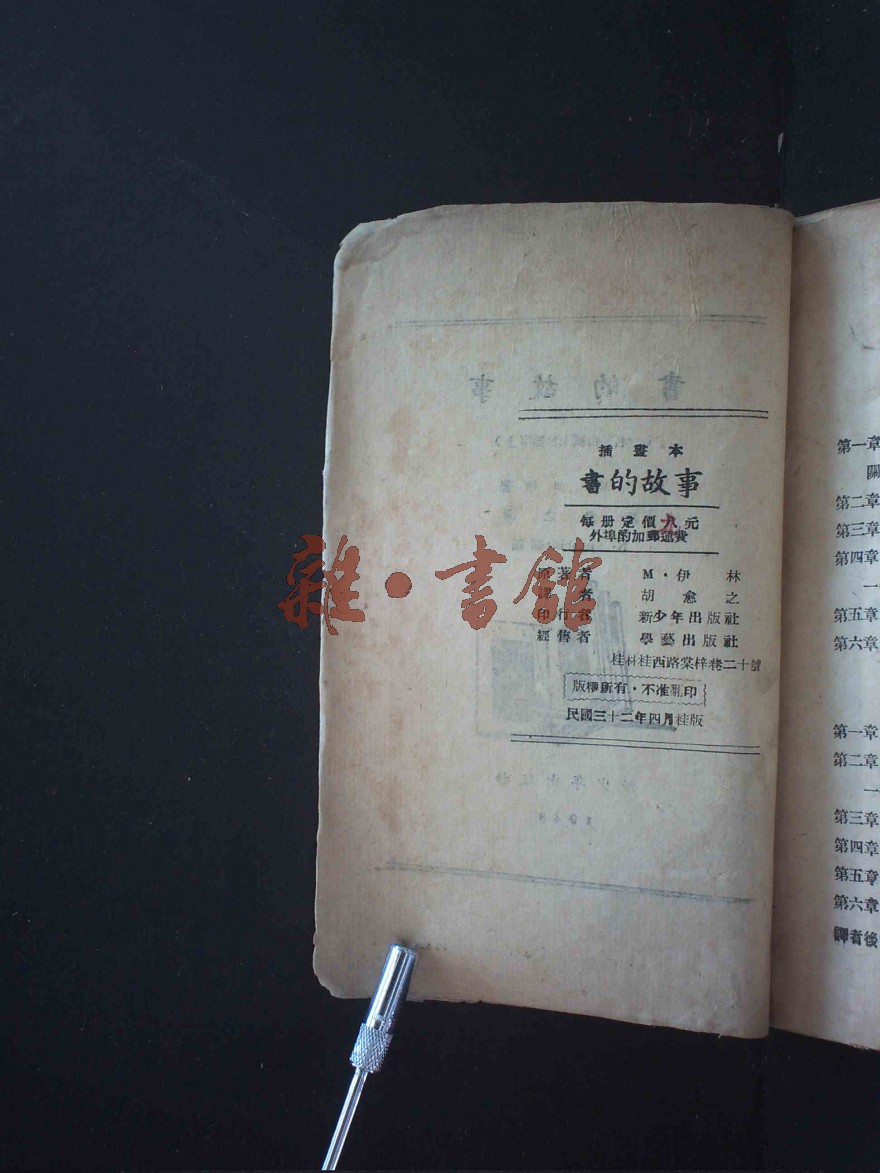 書的故事
插畫本
書的故事
每册定價八元
外埠酌加郵運費
原著者 M·伊林
譯者 胡愈之
印行者 新少年出版社
經售者 學藝出版社
桂林桂西路棠梓巷二十號
版權所有·不准翻印
民國三十二年四月桂版
雜·書館
第一章
第二章
第三章
第四章
一
第五章
第六章
第一章
第二章
一
第三章
第四章
第五章
第六章
譯者後